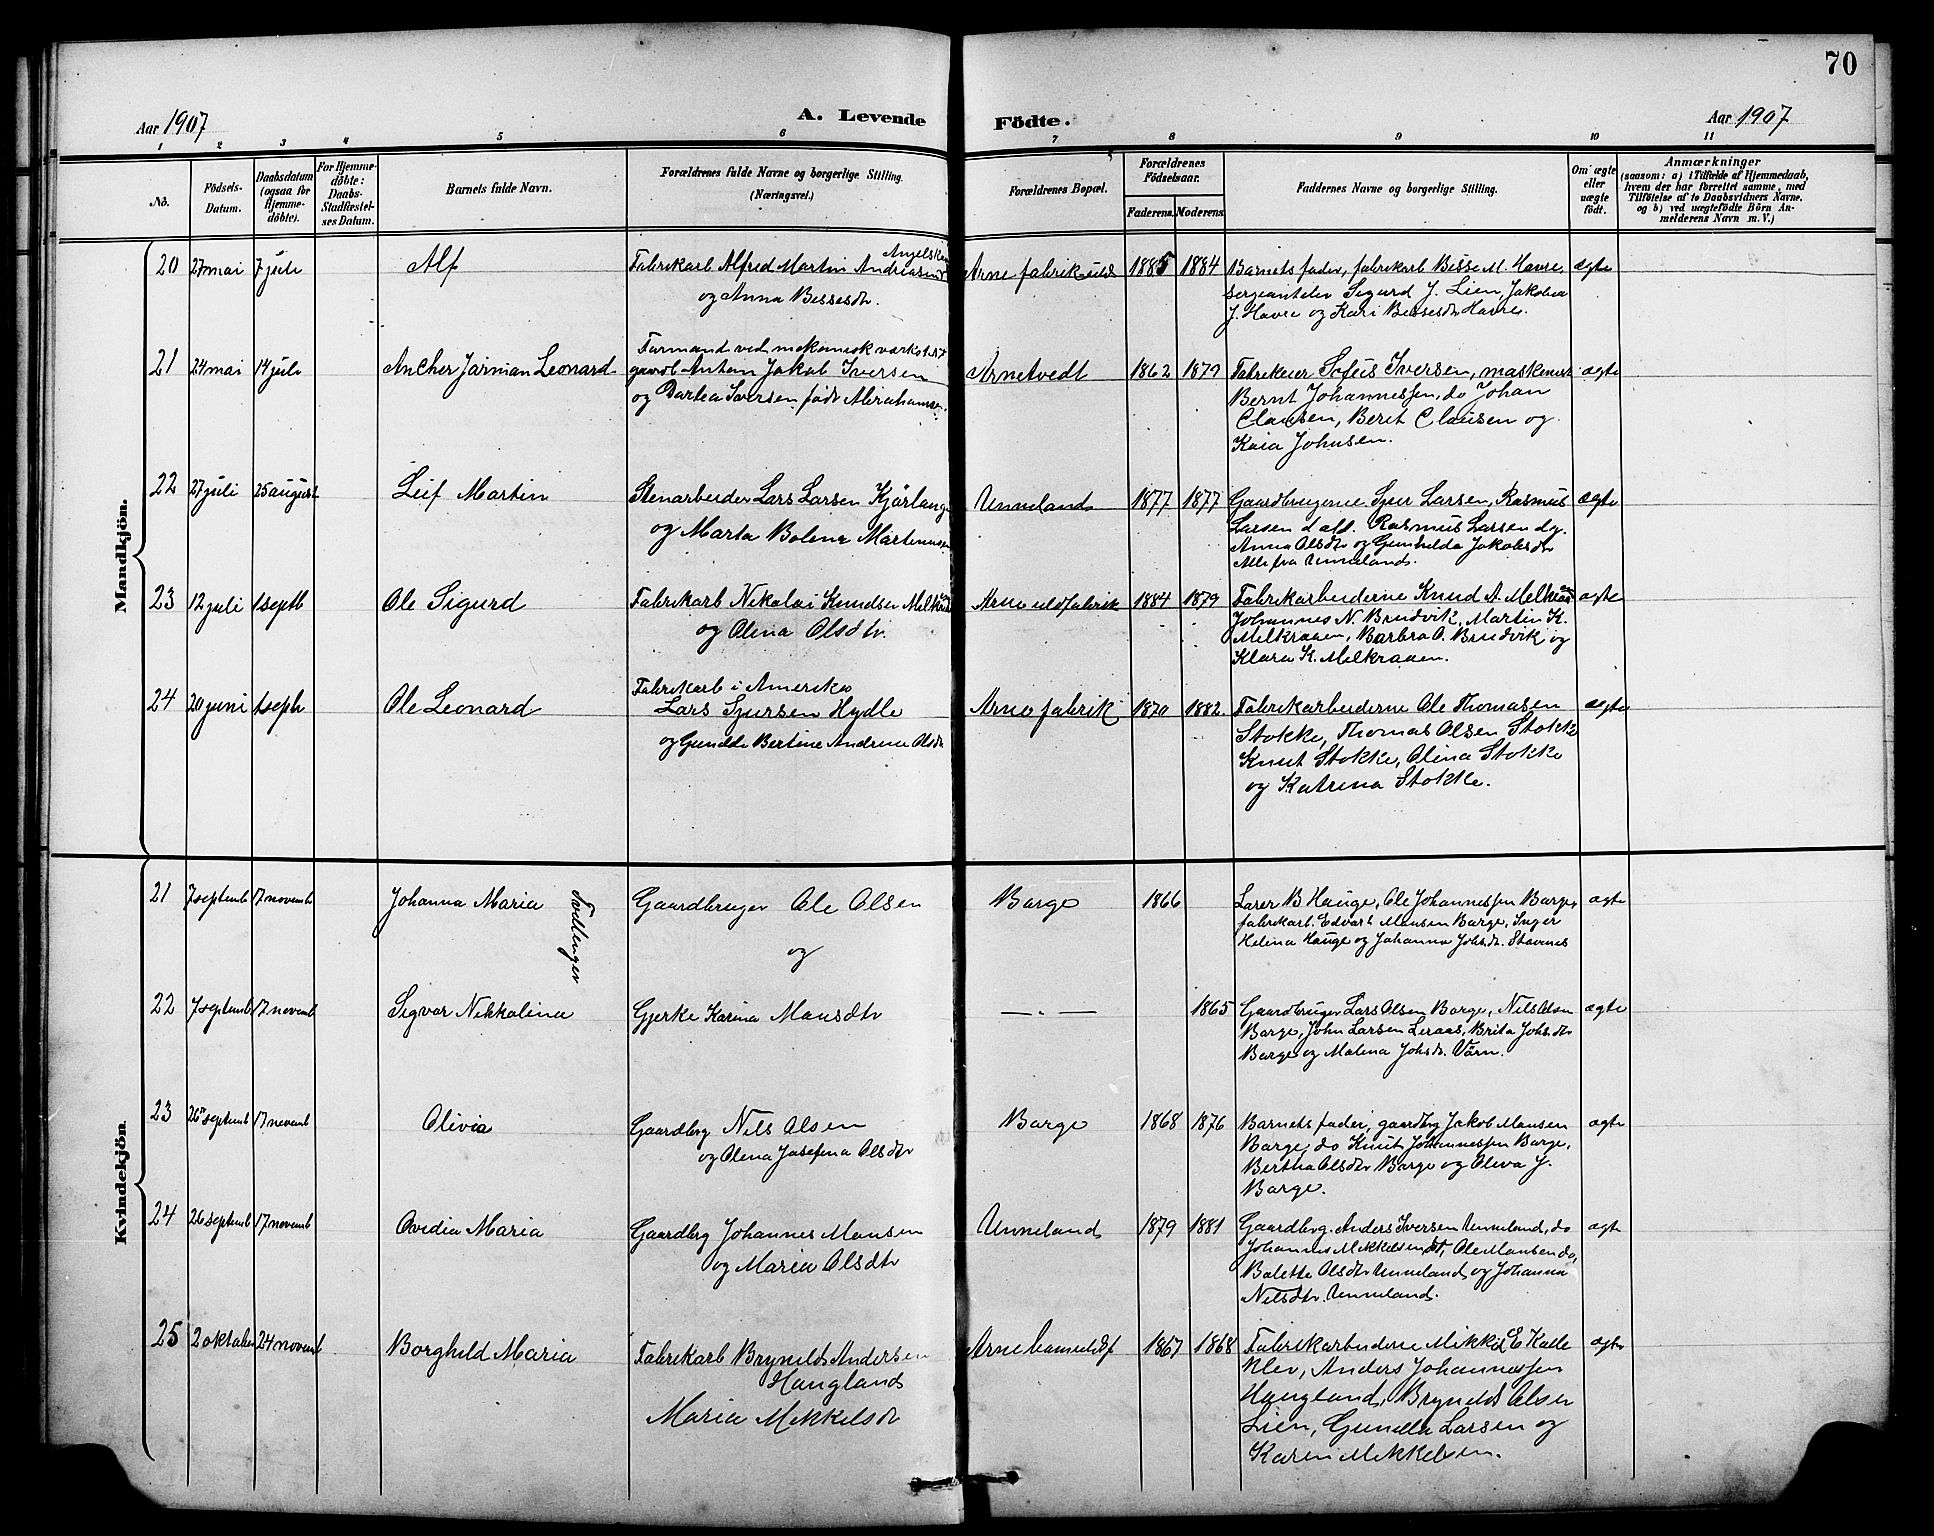 70
Aar 1907
A. Levende
Födte.
Aar 1907
1 2 3 4 5 6 7 8 9 10 11
No.
Födsels-
Datum.
Daabsdatum
(ogsaa for
Hjemme-
döbte).
For Hjemme-
döbte:
Daabs-
Stadfæstel-
ses Datum.
Barnets fulde Navn.
Forældrenes fulde Navne og borgerlige Stilling.
(Næringsvei.)
Forældrenes Bopæl.
Forældrenes
Födselsaar.
Faderens. Moderens.
Faddernes Navne og borgerlige Stilling.
Om ægte
eller
uægte
födt.
Anmærkninger
(saasom: a) i Tilfælde af Hjemmedaab,
hvem der har forrettet samme, med
Tilföielse af to Daabsvidners Navne.
og b) ved uægtefödte Börn An-
melderens Navn m. V.)
Mandkjön.
20 27 mai 7 juli Alf
Fabrikarb Alfred Martin Andreassen
og Anna Bessesdtr.
Arne fabrik 1885 1884
Barnets fader, fabrikarb Besse M. Havre,
Sigurd J. Lien, Jakobea
J. Havre og Kari Bessesdtr Havre.
ægte
21 24 mai 14 juli Ancher Jarman Leonard
Formand ved mekanisk
Anton Jakob Iversen
og Dortea Iversen född Abrahamsen
Arnetvedt 1862 1879
Sofus Iversen, maskenist
Bernt Johannessen, do Johan
Clausen, Berit Clausen og
Kaia Johnsen.
ægte
22 27 juli 25 august Leif Martin
Stenarbeider Lars Larsen
og Marta Bolena
Unneland 1877 1877
Gaardbrugerne Sjur Larsen, Rasmus
Larsen d alf. Rasmus Larsen dy.
Anna Olsdtr og Gunhilda Jakobsdtr
Alle fra Unneland.
ægte
23 12 juli 1 septb Ole Sigurd
Fabrikarb Nikolai Knudsen
og Olina Olsdtr.
Arne uldfabrik 1884 1879
Fabrikarbeiderne Knud A. Melkraaen
Johannes N. Brudvik, Martin K.
Melkraaen, Barbra O. Brudvik og
Klara K. Melkraaen.
ægte
24 20 juni 1 septb Ole Leonard
Fabrikarb i Amerika
Lars Sjursen Hydle
og Gunilde Bertine Andrine Olsdtr
Arne fabrik 1870 1882.
Fabrikarbeiderne Ole Thomasen
Stokke, Thomas Olsen Stokke
Knut Stokke, Olina Stokke
og Katrina Stokke.
ægte
Kvindekjön.
21 7 septemb 17 novemb Johanna Maria
Tvillinger
Gaardbruger Ole Olsen
og
Borge 1866
Lærer B Hauge, Ole Johannessen Borge,
fabrikarb. Edvart Monsen Borge, Inger
Helina Hauge og Johanna Johsdtr. Stavenes
ægte
22 7 septemb 17 novemb Sigvor Nikkolina
Gjerke Karina Monsdtr
— . — 1865
Gaardbruger Lars Olsen Borge, Nils Olsen
Borge, John Larsen Leraas, Brita Johsdtr
Borge og Malena Johsdtr.
ægte
23 26 septemb 17 novemb Olivia
Gaardbrg Nils Olsen
og Olena Josefina Olsdtr
Borge 1868 1876
Barnets fader, gaardbrg Jakob Monsen
Borge, do Knut Johannessen Borge,
Bertha Olsdtr Borge og Oliva J.
Borge.
ægte
24 26 septemb 17 novemb Ovidia Maria
Gaardbrg Johannes Monsen
og Maria Olsdtr
Unneland 1879 1881
Gaardbrg. Anders Iversen Unneland, do
Johannes Mikkelsen do, Ole Monsen do,
Bolette Olsdtr Unneland og Johanna
Nilsdtr. Unneland.
ægte
25 2 oktober 24 novemb Borghild Maria
Fabrikarb Brynild Andersen
Haugland
Maria Mikkelsdtr
1867 1868
Fabrikarbeiderne Mikkel E Kalle
klev, Anders Johannessen
Haugland, Brynild Olsen
Lien, Gunilla Larsen og
Karen Mikkelsen.
ægte